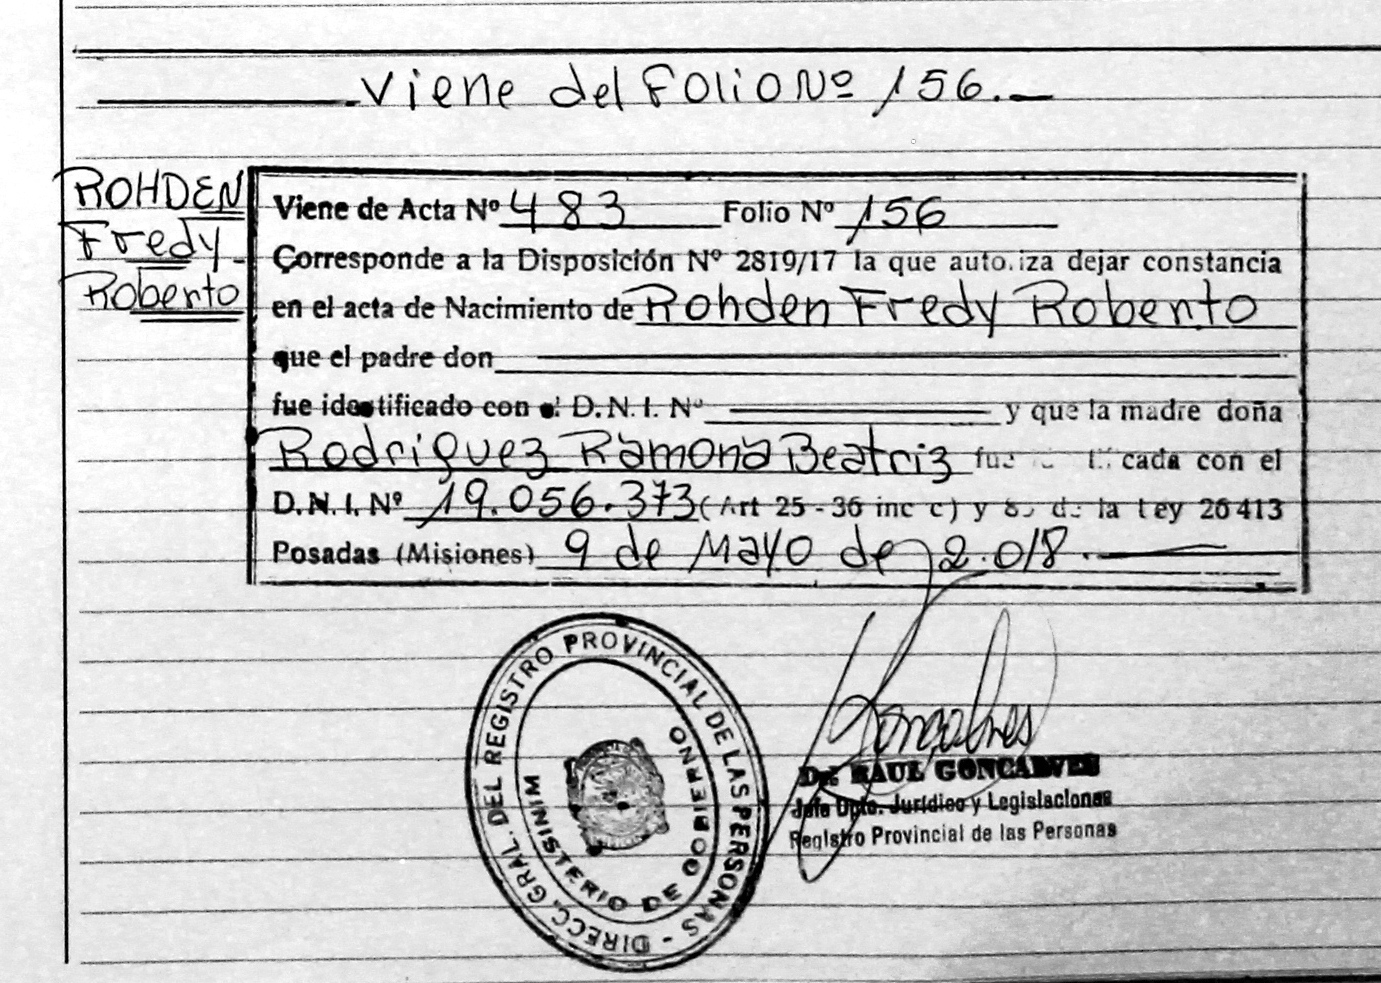 Viene del Folio Nº 156.
ROHDEN
Fredy
Roberto
Viene de Acta Nº 483 Folio Nº 156
Corresponde a la Disposición Nº 2819/17 la que auto.iza dejar constancia
en el acta de Nacimiento de Rohden Fredy Roberto
que el padre don
fue identificado con el D.N.I. Nº y que la madre doña
Rodriguez Ramona Beatriz fue cada con el
D.N.I. Nº 19.056.373 (Art 25 - 36 inc c) y de la Ley 26413
Posadas (Misiones) 9 de Mayo de 2.018.
DIRECC. GRAL. DEL REGISTRO PROVINCIAL DE LAS PERSONAS -
MINISTERIO DE GOBIERNO
Goncalves
Dr. RAUL GONCALVES
Jefe Dpto. Jurídico y Legislaciones
Registro Provincial de las Personas